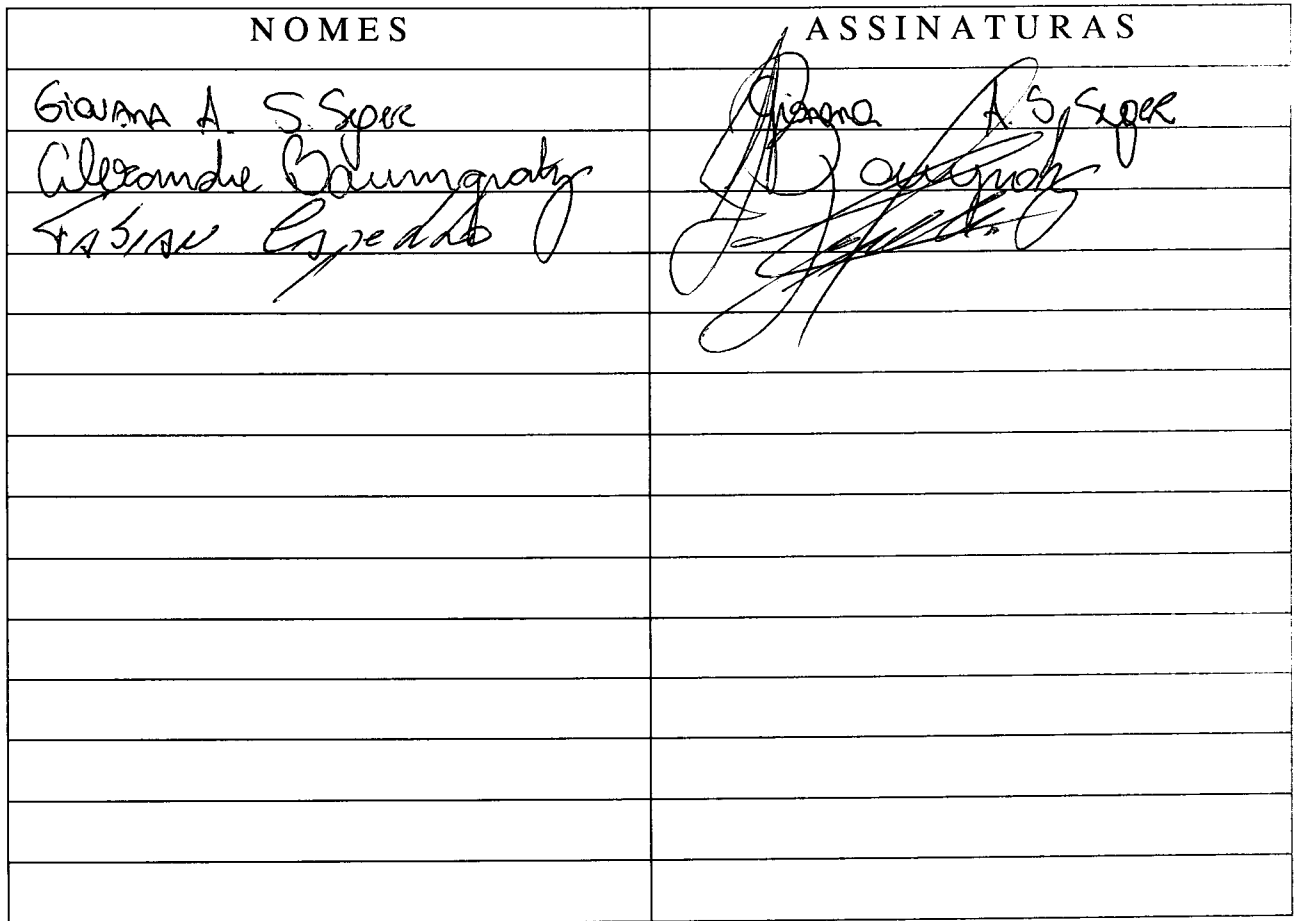 NOMES ASSINATURAS
GiovAnA A. S. Seger Giovana A. S. Seger
Alexandre Baumgratz
FABIAN